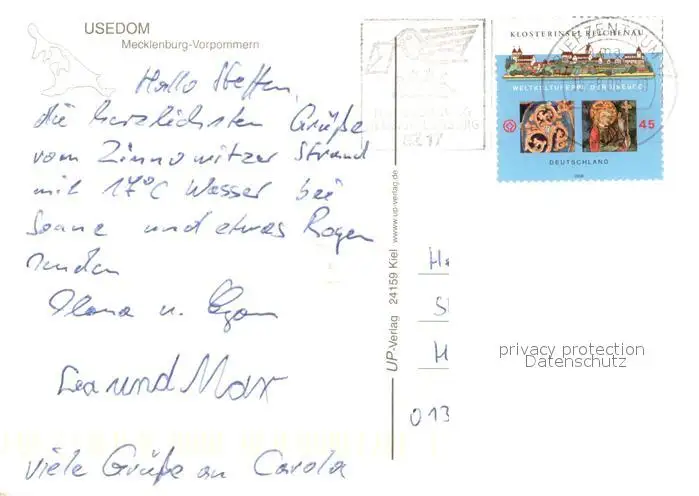 USEDOM
Mecklenburg-Vorpommern
Hallo Steffen,
die herzlichsten Grüße
vom Zinnowitzer Strand
mit 17°C Wasser bei
Sonne und etwas Regen
senden
Ilona u.
Lea und Max
viele Grüße an Carola
UP-Verlag 24159 Kiel www.up-verlag.de
KLOSTERINSEL REICHENAU
WELTKULTURERBE DER UNESCO
45
DEUTSCHLAND
2008
BRIEFZENTRUM
H
S
H
013
privacy protection
Datenschutz